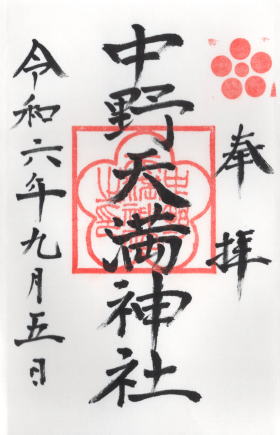 奉拝
中野天満神社
令和六年九月五日